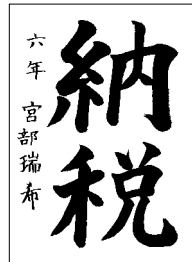 納税
六年 宮部瑞希